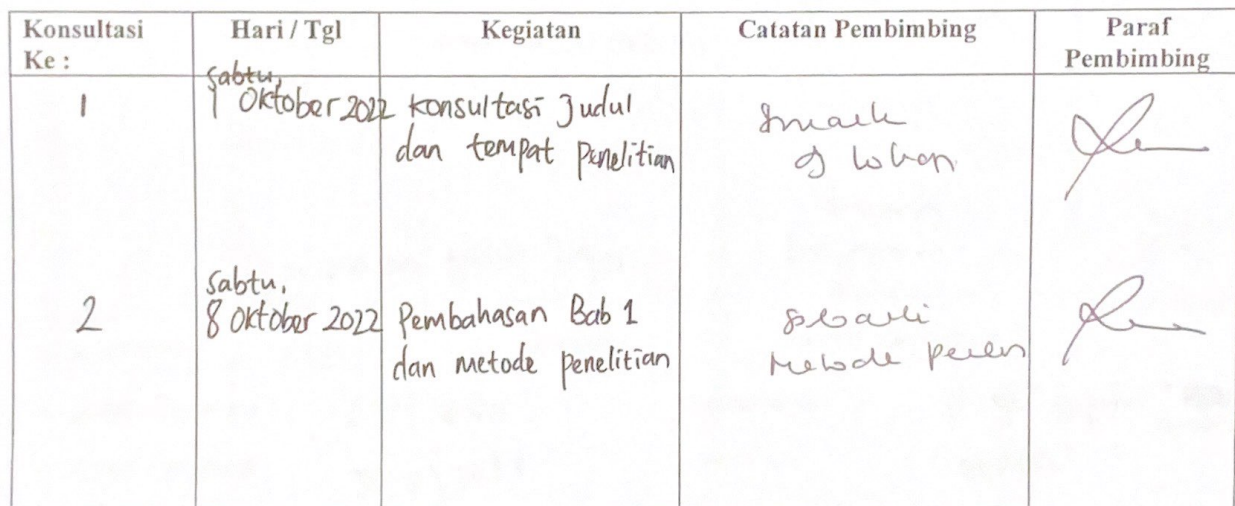 Konsultasi Ke :
Hari / Tgl
Kegiatan
Catatan Pembimbing
Paraf Pembimbing
1
Sabtu,
1 Oktober 2022
Konsultasi Judul
dan tempat Penelitian
2
Sabtu,
8 Oktober 2022
Pembahasan Bab 1
dan metode penelitian
Metode